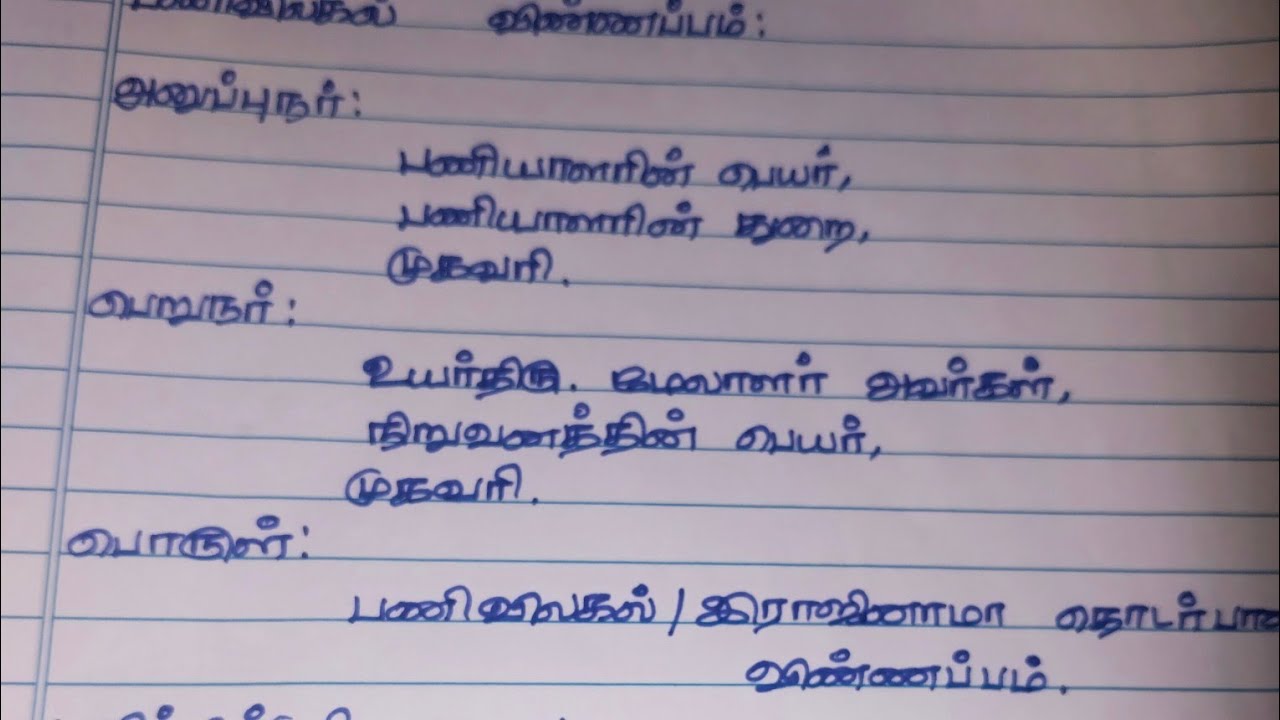 பணிவிலகல் விண்ணப்பம்:
அனுப்புநர்:
பணியாளரின் பெயர்,
பணியாளரின் துறை,
முகவரி.
பெறுநர்:
உயர்திரு. மேலாளர் அவர்கள்,
நிறுவனத்தின் பெயர்,
முகவரி.
பொருள்:
பணிவிலகல் / இராஜினாமா தொடர்பான
விண்ணப்பம்.